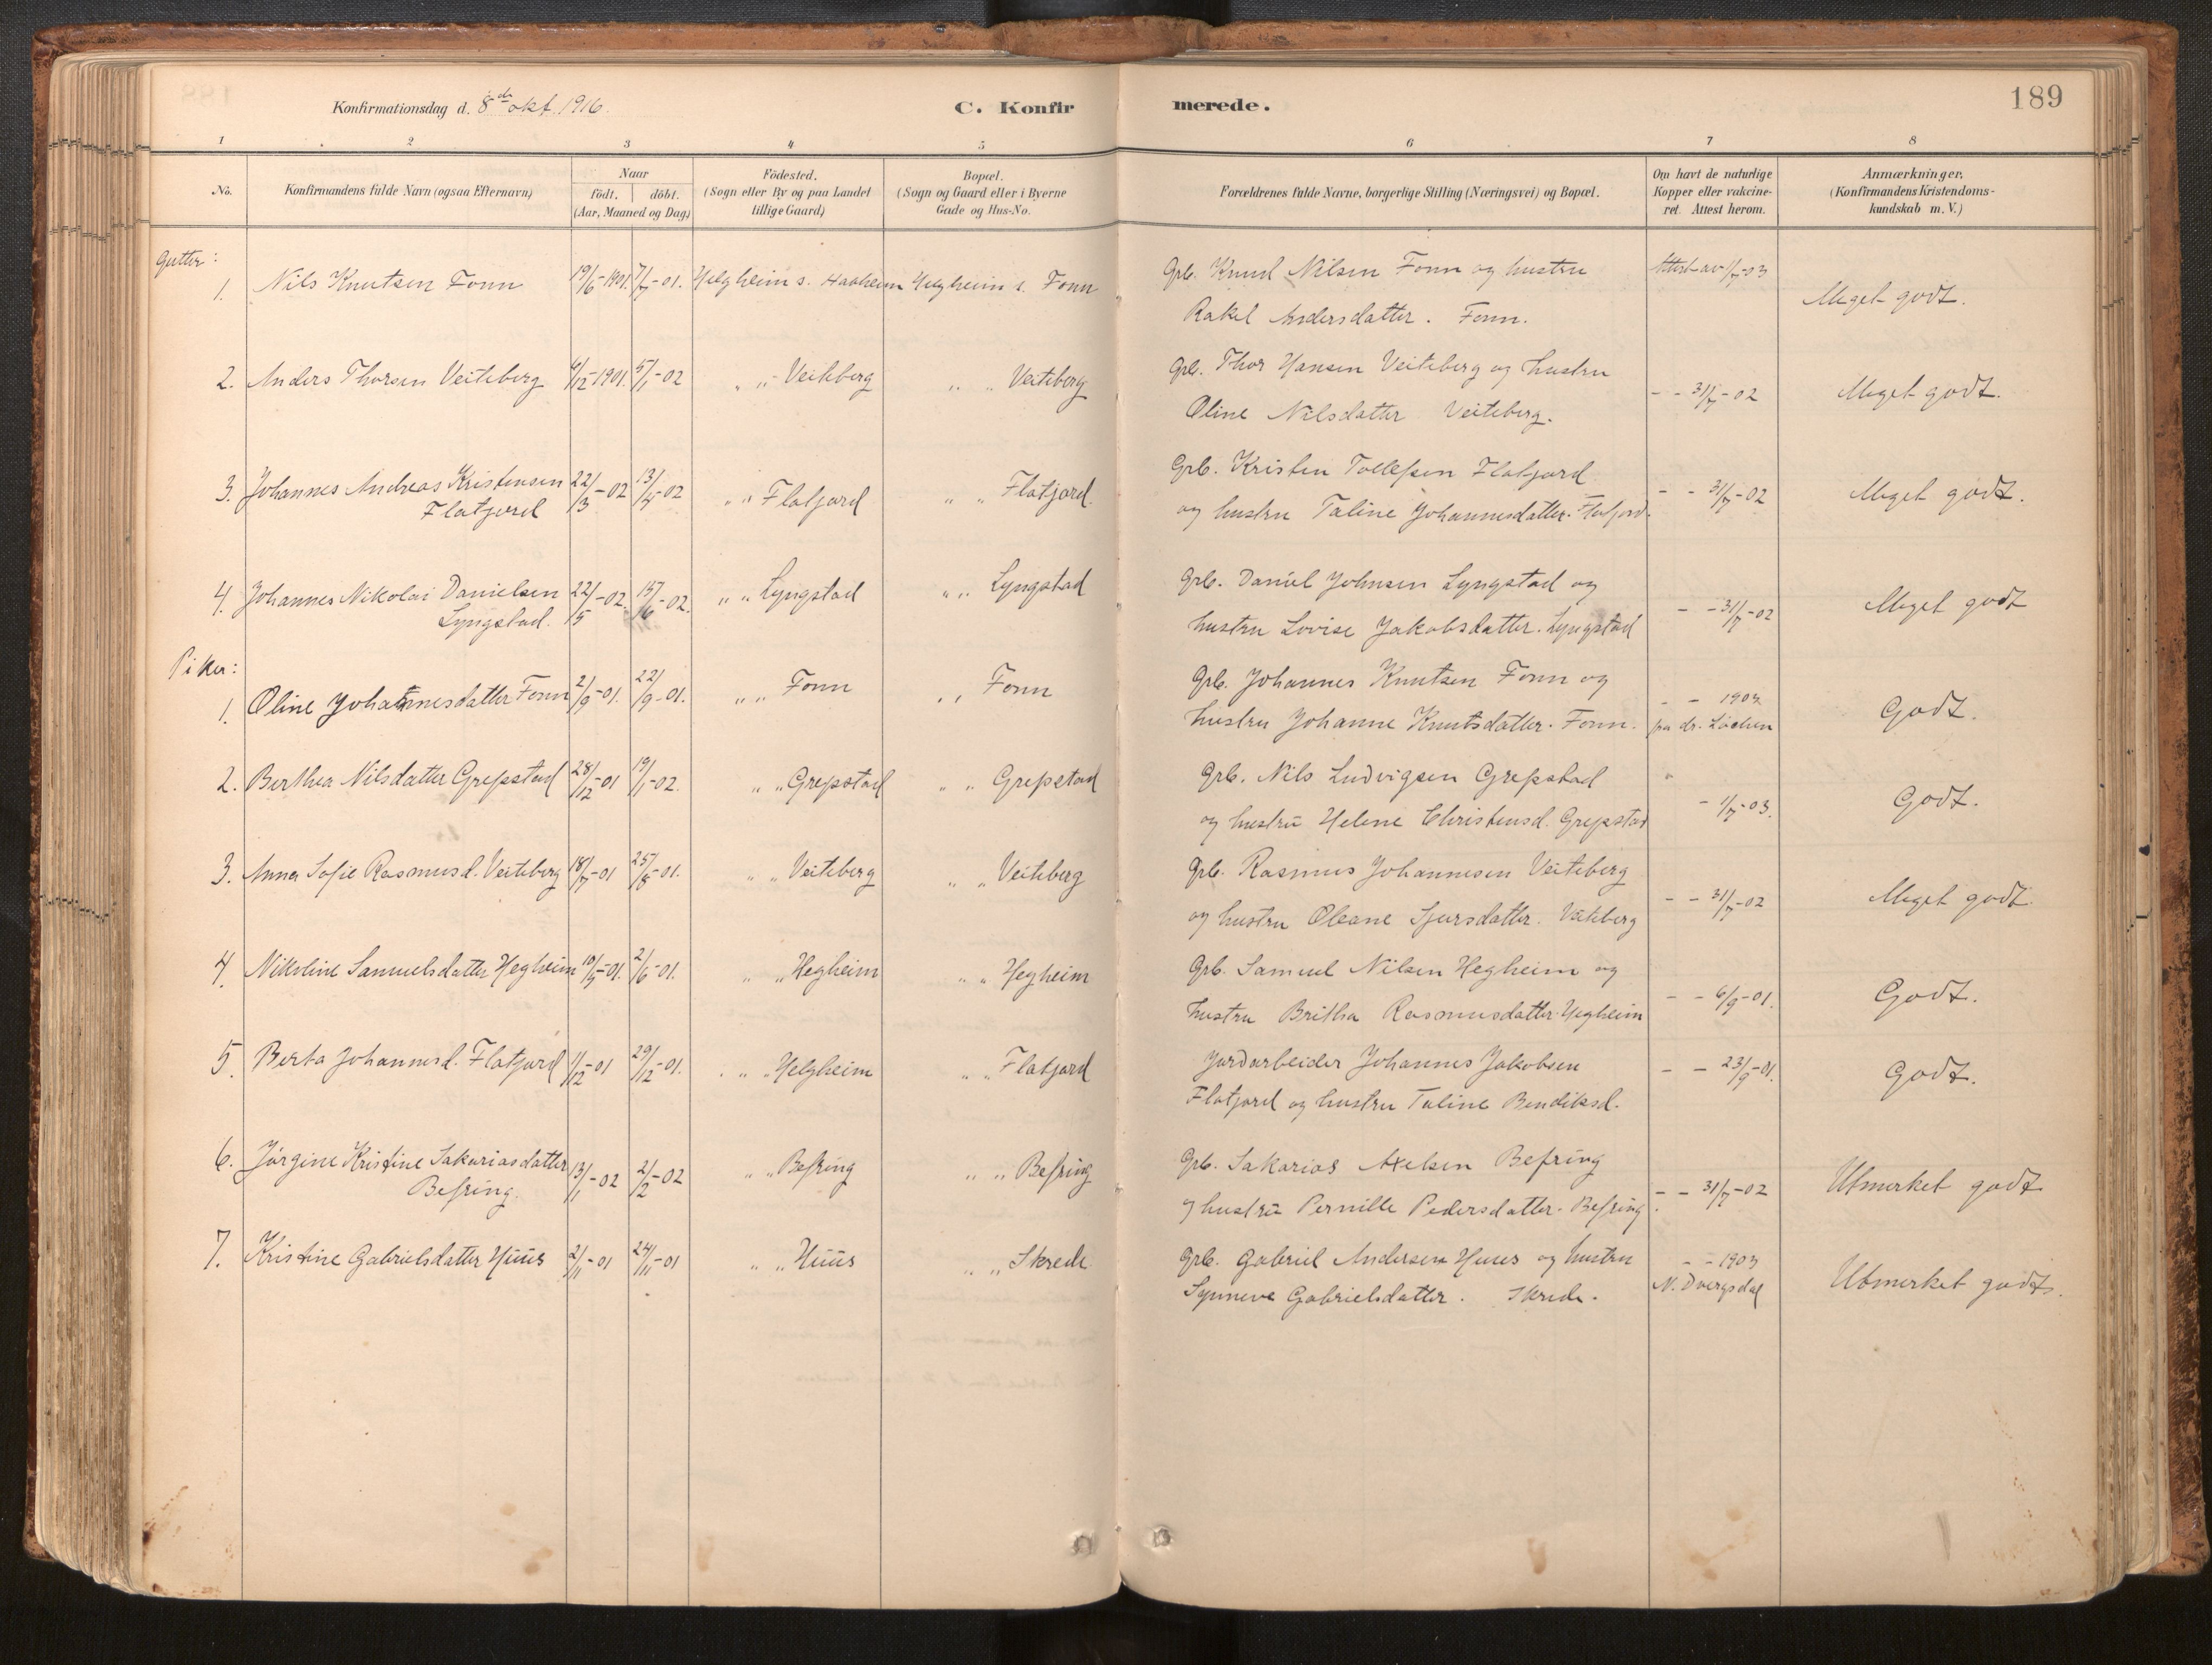 Konfirmationsdag d. 8de okt. 1916.
C. Konfirmerede.
189
1 2 3 4 5 6 7 8
No.
Konfirmandens fulde Navn (ogsaa Efternavn)
Naar
födt. döbt.
(Aar, Maaned og Dag)
Födested.
(Sogn eller By og paa Landet
tillige Gaard)
Bopæl.
(Sogn og Gaard eller i Byerne
Gade og Hus-No.
Forældrenes fulde Navne, borgerlige Stilling (Næringsvei) og Bopæl.
Om havt de naturlige
Kopper eller vakcine-
ret. Attest herom.
Anmærkninger.
(Konfirmandens Kristendoms-
kundskab m. V.)
Gutter:
1. Nils Knutsen Fonn 19/6-1901. 7/7-01. Helgheim s. Haaheim Helgheim s. Fonn Grb. Knud Nilsen Fonn og hustru Attest av 1/7-03 Meget godt.
Rakel Andersdatter. Fonn.
2. Anders Thorsen Veiteberg 6/12-1901. 5/1-02 " " Veiteberg " " Veiteberg Grb. Thor Hansen Veiteberg og hustru - - 31/7-02 Meget godt.
Oline Nilsdatter Veiteberg.
3. Johannes Andreas Kristensen 22/3-02 13/4-02 " " Flatjord " " Flatjord. Grb. Kristen Tollefsen Flatjord - - 31/7-02 Meget godt.
Flatjord og hustru Taline Johannesdatter. Flatjord.
4. Johannes Nikolai Danielsen 22/5-02. 15/6-02. " " Lyngstad " " Lyngstad Grb. Daniel Johnsen Lyngstad og - - 31/7-02 Meget godt
Lyngstad. hustru Lovise Jakobsdatter. Lyngstad
Piker:
1. Oline Johannesdatter Fonn 2/9-01. 22/9-01. " " Fonn " " Fonn Grb. Johannes Knutsen Fonn og - - 1903 Godt.
hustru Johanne Knutsdatter. Fonn. fra dr. Löchen
2. Berthea Nilsdatter Grepstad 28/12-01 19/1-02. " " Grepstad " " Grepstad Grb. Nils Ludvigsen Grepstad " - 1/7-03. Godt.
og hustru Helene Christensd. Grepstad
3. Anna Sofie Rasmusd. Veiteberg 18/7-01 25/8-01. " " Veiteberg " " Veiteberg Grb. Rasmus Johannesen Veiteberg - - 31/7-02 Meget godt.
og hustru Oleane Sjursdatter. Veiteberg
4. Nikoline Samuelsdatter Hegheim 10/5-01. 2/6-01. " " Hegheim " " Hegheim Grb. Samuel Nilsen Hegheim og - - 6/9-01. Godt.
hustru Britha Rasmusdatter. Hegheim
5. Berta Johannesd. Flatjord 1/12-01 29/12-01. " " Helgheim " " Flatjord Jordarbeider Johannes Jakobsen - - 23/9-01. Godt.
Flatjord og hustru Taline Bendiksd.
6. Jörgine Kristine Sakariasdatter 13/1-02 2/2-02 " " Befring " " Befring Grb. Sakarias Axelsen Befring - - 31/7-02 Utmerket godt
Befring. og hustru Pernille Pedersdatter. Befring.
7. Kristine Gabrielsdatter Huus 2/11-01 24/11-01 " " Huus " " Skrede Grb. Gabriel Andersen Huus og hustru - - 1903 Utmerket godt.
Synneve Gabrielsdatter. Skrede. N. Dvergsdal